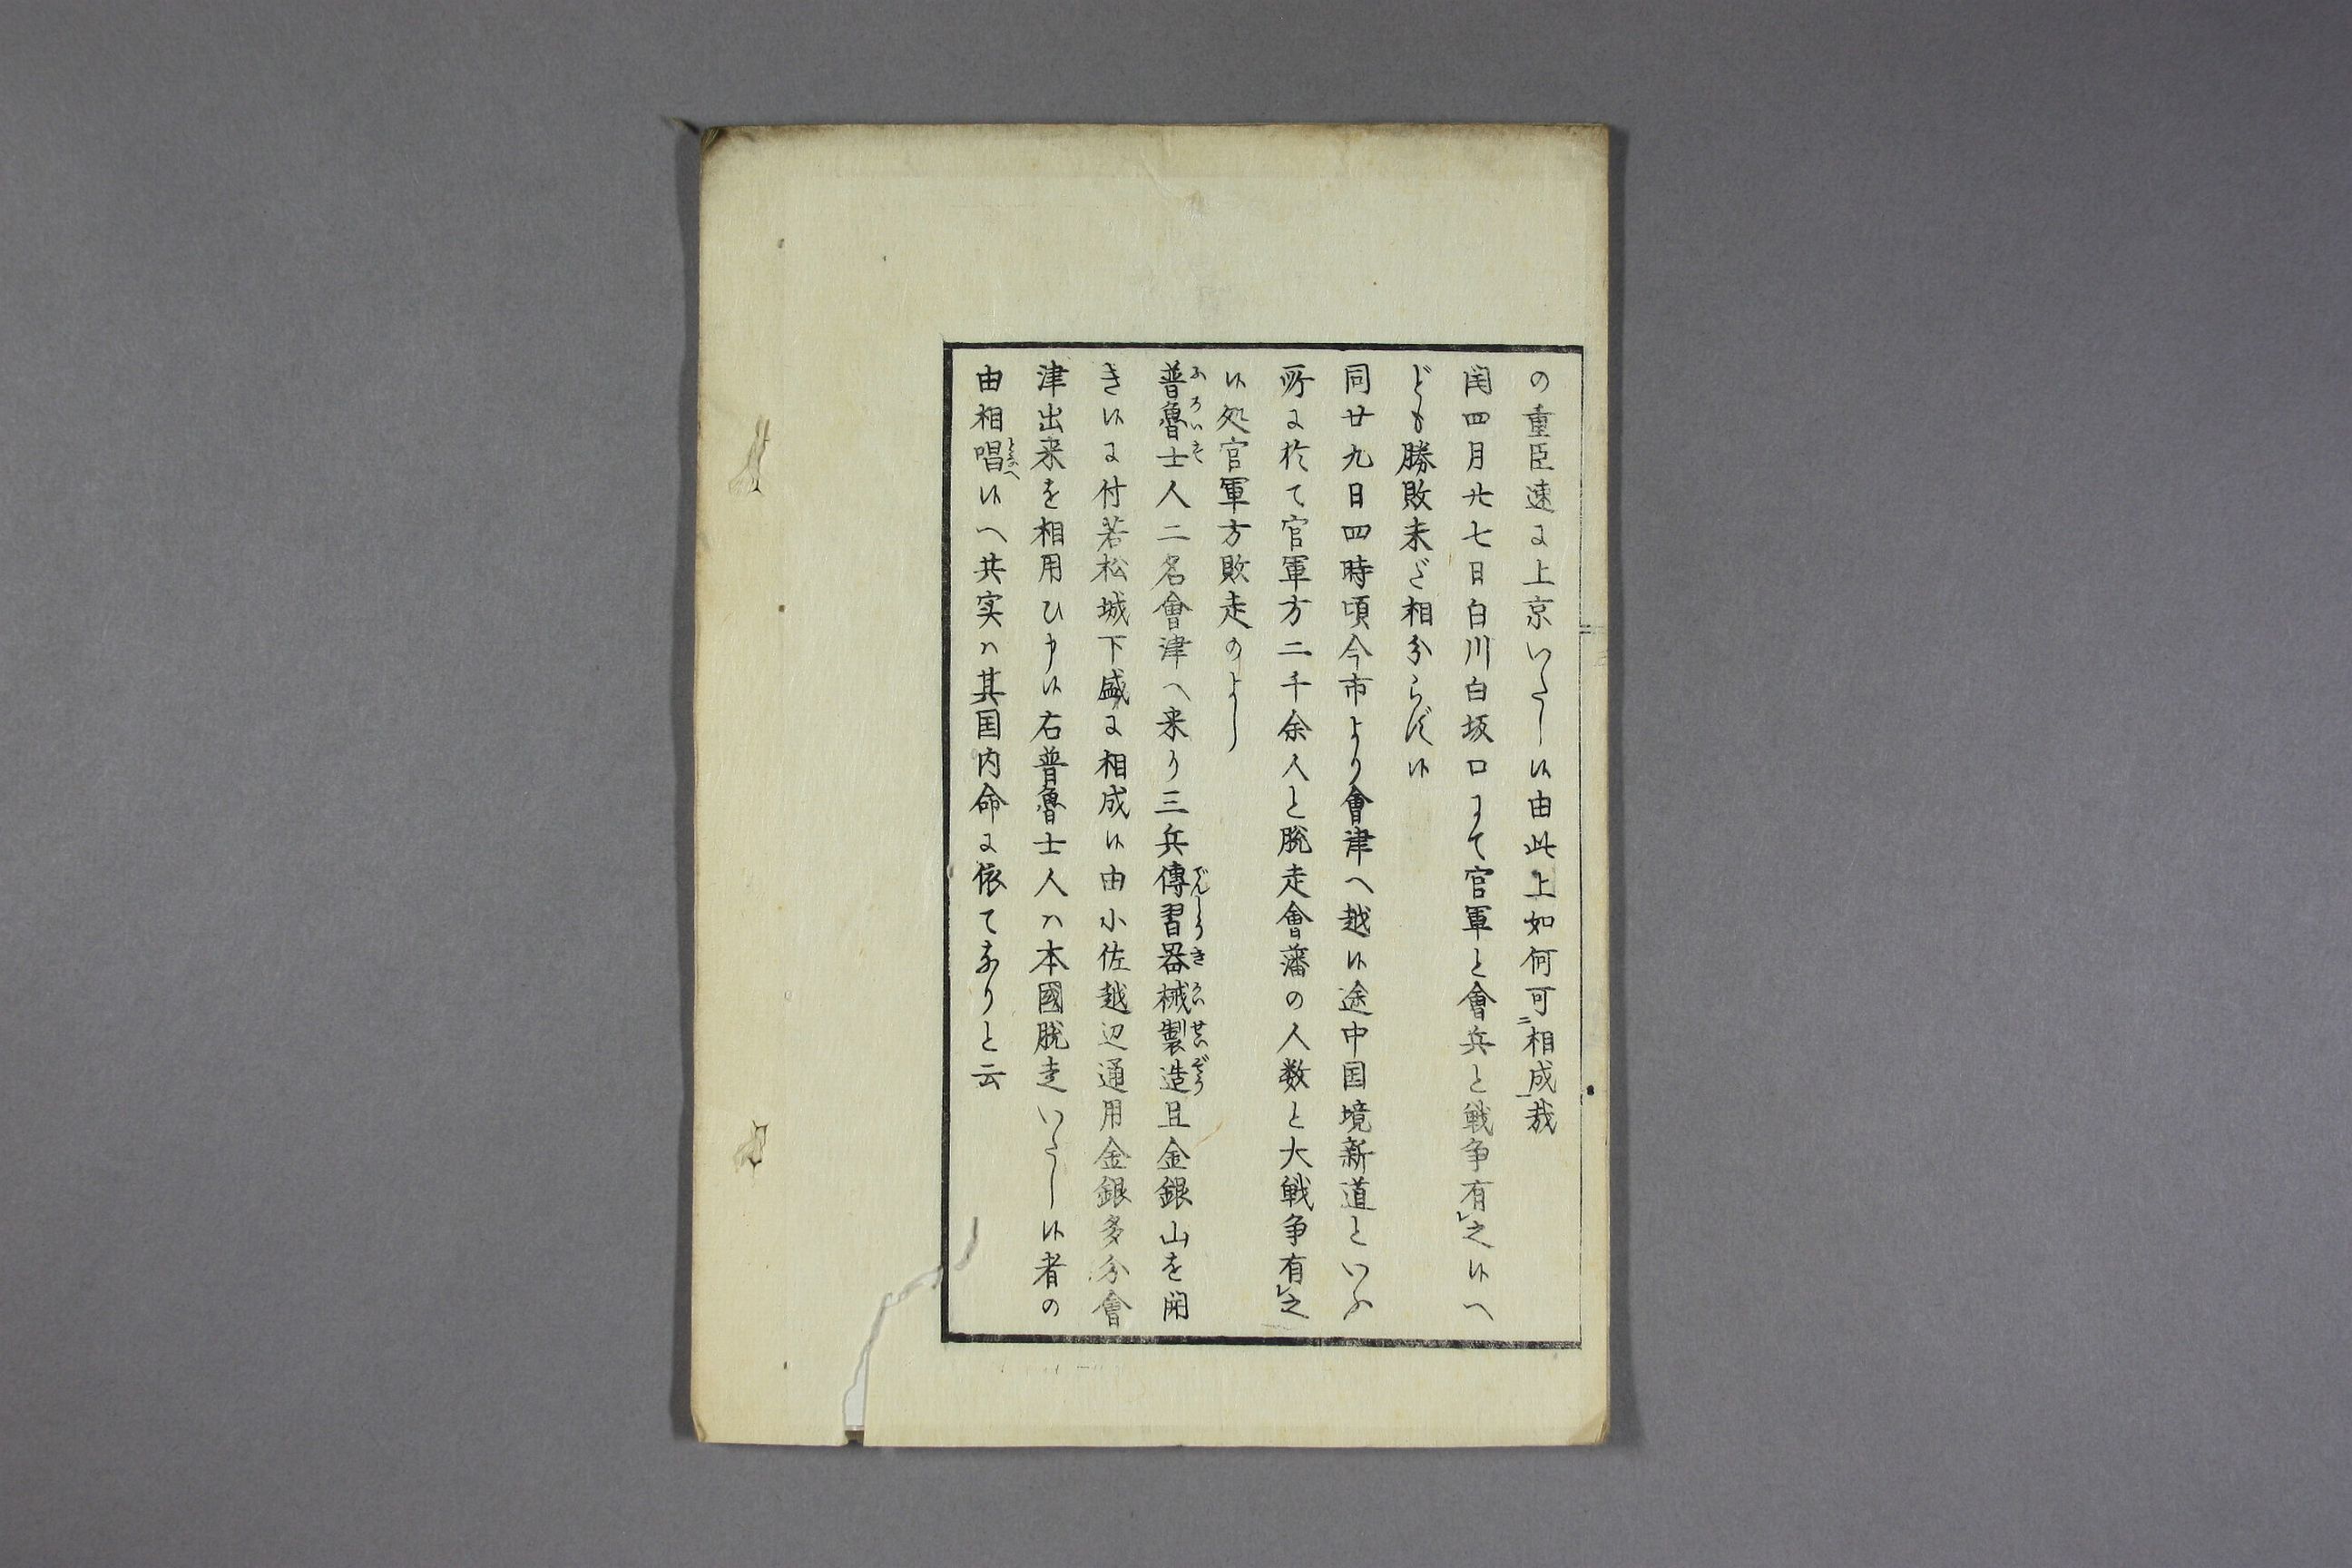 の重臣速に上京いたし候由此上如何可二相成一哉
閏四月廿七日白川白坂口にて官軍と會兵と戦争有レ之候へ
ども勝敗未だ相分らず候
同廿九日四時頃今市より會津へ越候途中国境新道といふ
所に於て官軍方二千余人と脱走會藩の人数と大戦争有レ之
候処官軍方敗走のよし
普魯士人二名會津へ来り三兵傳習器械製造且金銀山を開
き候に付若松城下盛に相成候由小佐越辺通用金銀多分會
津出来を相用ひ申候右普魯士人ハ本國脱走いたし候者の
由相唱候へ共実ハ其国内命に依てなりと云